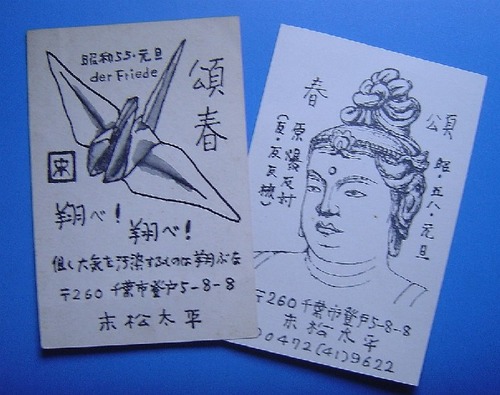 昭和55・元旦
der Friede
頌春
宋
翔べ!
翔べ!
但し大気を汚染するものは翔ぶな
〒260 千葉市登戸5-8-8
赤松太平
頌
春
昭五八・元旦
原爆反対
〒260千葉市登戸5-8-8
赤松太平
0472(41)9622